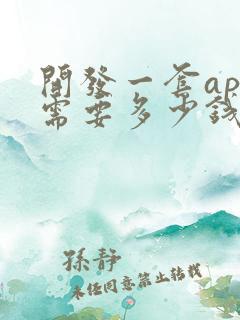 開發一套ap
需要多少錢
孫靜
未经同意禁止转载